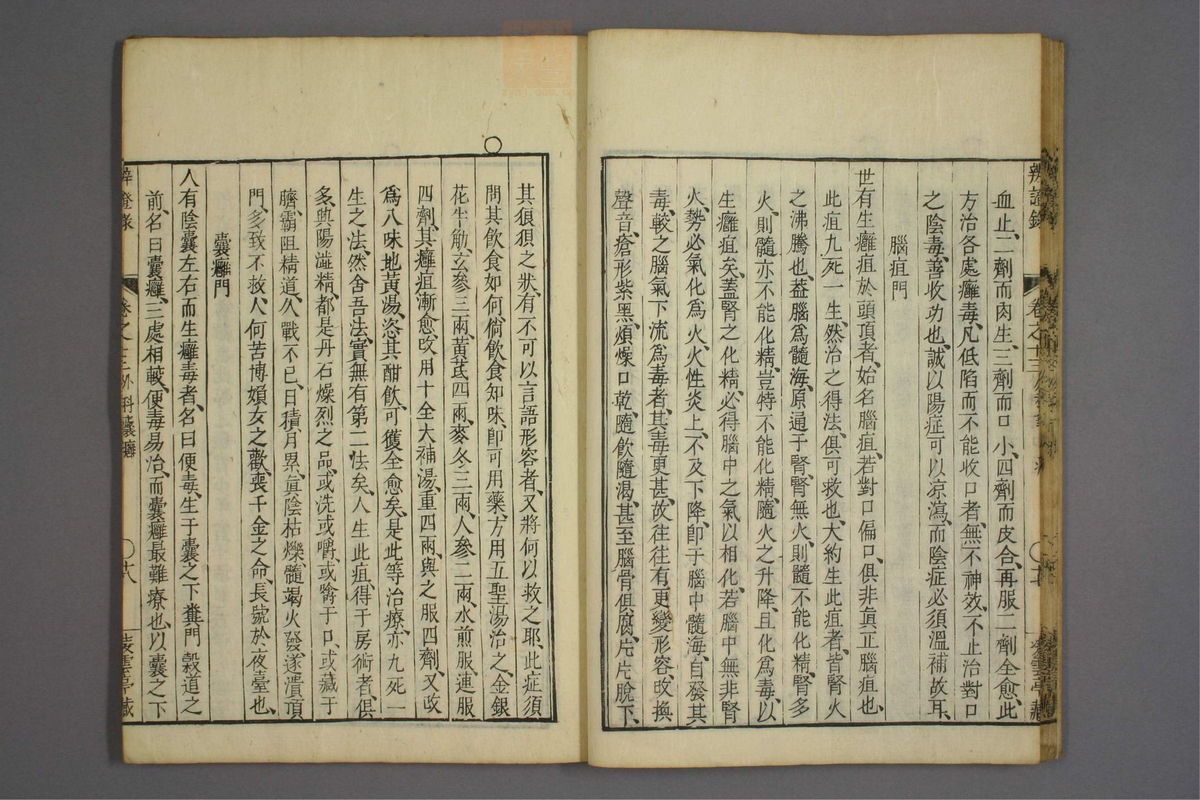 辨證錄
卷之十三
血止、二劑而肉生、三劑而口小、四劑而皮合、再服二劑全愈、此
方治各處癰毒、凡低陷而不能收口者、無不神效、不止治對口
之陰毒、善收功也、誠以陽症可以凉瀉、而陰症必須溫補故耳、
腦疽門
世有生癰疽於頭頂者、始名腦疽、若對口偏口、俱非眞正腦疽也、
此疽九死一生、然治之得法、俱可救也、大約生此疽者、皆腎火
之沸騰也、葢腦爲髓海、原通于腎、腎無火、則髓不能化精、腎多
火、則髓亦不能化精、豈特不能化精、隨火之升降、且化爲毒、以
生癰疽矣、蓋腎之化精、必得腦中之氣以相化、若腦中無非腎
火、勢必氣化爲火、火性炎上、不及下降、卽于腦中髓海、自發其
毒、較之腦氣下流爲毒者、其毒更甚、故往往有更變形容、改換
聲音、瘡形紫黑、煩燥口乾、隨飲隨渴、甚至腦骨俱腐、片片脫下、
其狼狽之狀、有不可以言語形容者、又將何以救之耶、此症須
問其飲食如何、倘飲食知味、卽可用藥、方用五聖湯治之、金銀
花半觔、玄參三兩、黃芪四兩、麥冬三兩、人參二兩、水煎服、連服
四劑、其癰疽漸愈、改用十全大補湯、重四兩、與之服四劑、又改
爲八味地黃湯、恣其酣飲、可獲全愈矣、是此等治療、亦九死一
生之法、然舍吾法、實無有第二法矣、人生此疽、得于房術者、俱
多、興陽澁精、都是丹石燥烈之品、或洗或嚼、或噙于口、或藏于
臍、霸阻精道、久戰不已、日積月累、眞陰枯爍、髓竭火發、遂潰頂
門、多致不救、人何苦博婦女之歡、喪千金之命、長號於夜臺也、
囊癰門
人有陰囊左右而生癰毒者、名曰便毒、生于囊之下、糞門穀道之
前、名曰囊癰、三處相較、便毒易治、而囊癰最難療也、以囊之下
辨證錄
卷之十三外科囊癰